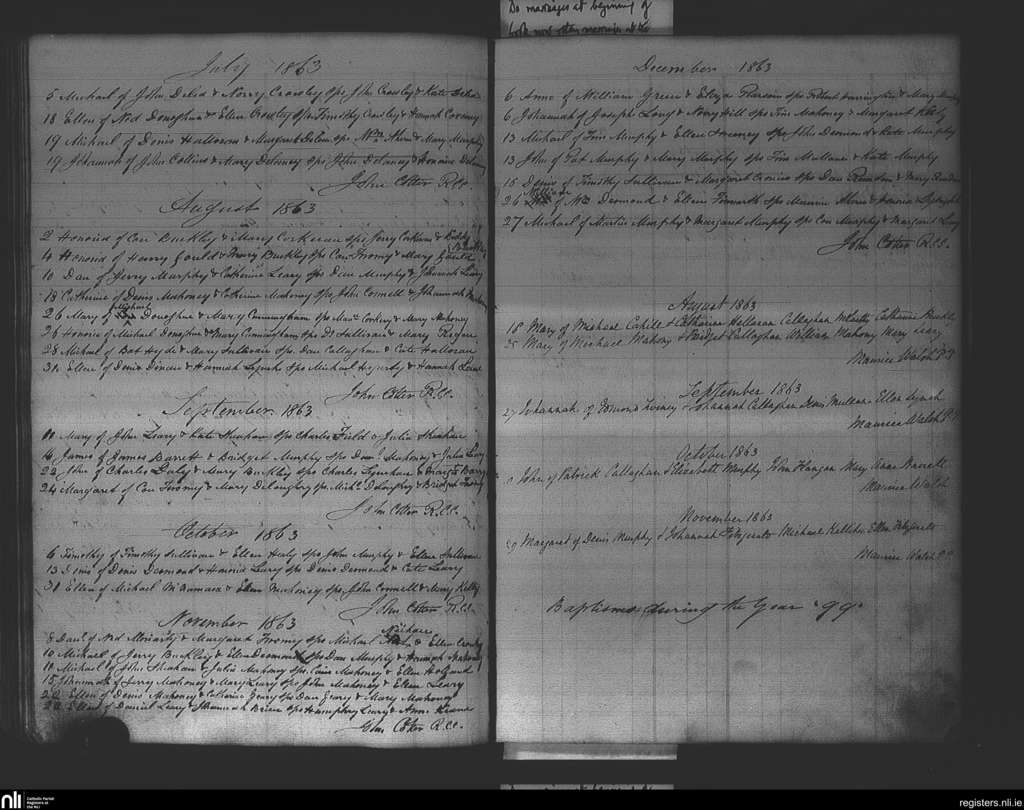 Do marriages at beginning of
July 1863
5 Michael of John & Norry Crowley Sps John Crowley & Kate
18 Ellen of Ned Donoghue & Ellen Crowley Sps Timothy Crowley & Hannah
19 Michael of Denis Halloran & Margaret Sps Wm Ahern & Mary Murphy
19 Johannah of John Collins & Mary Delaney Sps John Delaney & Honora
John Cotter R.C.C.
August 1863
2 Honorid of Con Buckley & Mary Corkeran Sps Jerry Corkeran &
4 Honorid of Harry Gould & Mary Buckley Sps Con Twomy & Mary Gould
10 Dan of Jerry Murphy & Catherine Leary Sps Dan Murphy & Johannah Leary
18 Catherine of Denis Mahoney & Catherine Mahony Sps John Connell & Johannah
Michael
26 Mary of Donoghue & Mary Cunningham Sps Corkery & Mary Mahony
26 Honorid of Michael Donoghue & Mary Cunningham Sps Sullivan & Mary
28 Michael of Bat Hyde & Mary Sullivan Sps Dan Callaghan & Cate Halloran
31 Ellen of Denis & Hannah Lynch Sps Michael Hegarty & Hannah
John Cotter R.C.C.
September 1863
Mary of John Leary & Kate Sheehan Sps Charles Field & Julia Sheehan
James of James Barrett & Bridget Murphy Sps Danl Mahoney & Julia Leary
22 John of Charles Daly & Mary Buckley Sps Charles & Margt Barry
24 Margaret of Con Twomy & Mary Deloughry Sps Michl Deloughry & Bridget Twomy
John Cotter R.C.C.
October 1863
6 Timothy of Timothy Sullivan & Ellen Healy Sps John Murphy & Ellen Sullivan
13 Denis of Denis Desmond & Honorid Leary Sps Denis Desmond & Cate Leary
31 Ellen of Michael McNamara & Ellen Mahoney Sps John Connell & Mary Kelly
John Cotter R.C.C.
November 1863
8 Danl of Ned Moriarty & Margaret Twomy Sps Michael & Ellen
10 Michael of Jerry Buckley & Ellen Desmond Sps Dan Murphy & Hannah
Michael of John Sheehan & Julia Mahony Sps Mahoney & Ellen
15 Johannah of Jerry Mahoney & Mary Leary Sps John Mahoney & Ellen Leary
22 Ellen of Denis Mahoney & Catharine Geary Sps Dan Geary & Mary Mahony
22 Ellen of Daniel Leary & Johannah Sps Humphry Leary & Ann Keane
John Cotter R.C.C.
December 1863
6 Anne of William Green & Eliza Sps Robert & Mary
6 Johannah of Joseph Long & Nory Hill Sps Tim Mahoney & Margaret
13 Michael of Tim Murphy & Ellen Sweeney Sps John Desmond & Kate Murphy
13 John of Pat Murphy & Mary Murphy Sps Tim Mullane & Kate Murphy
15 Denis of Timothy Sullivan & Margaret Cronin Sps Dan Riordan & Mary
William
26 of Wm Desmond & Ellen Sps Maurice Ahern &
27 Michael of Martin Murphy & Margaret Murphy Sps Con Murphy & Margaret Leary
John Cotter R.C.C.
August 1863
18 Mary of Michael Cahill & Catharine Halloran Callaghan Catherine Buckley
25 Mary of Michael Mahony & Bridget Callaghan William Mahony Mary Leary
Maurice Walsh P.P.
September 1863
27 Johannah of Edmond Twomey & Johannah Callaghan Denis Mullane Ellen Lynch
Maurice Walsh P.P.
October 1863
John of Patrick Callaghan & Elizabeth Murphy John Hangan Mary Anne Barrett
Maurice Walsh
November 1863
29 Margaret of Denis Murphy & Johannah Fitzgerald Michael Kelliher Ellen Fitzgerald
Maurice Walsh P.P.
Baptisms during the Year "99"
nli
Catholic Parish
Registers at
the NLI
registers.nli.ie